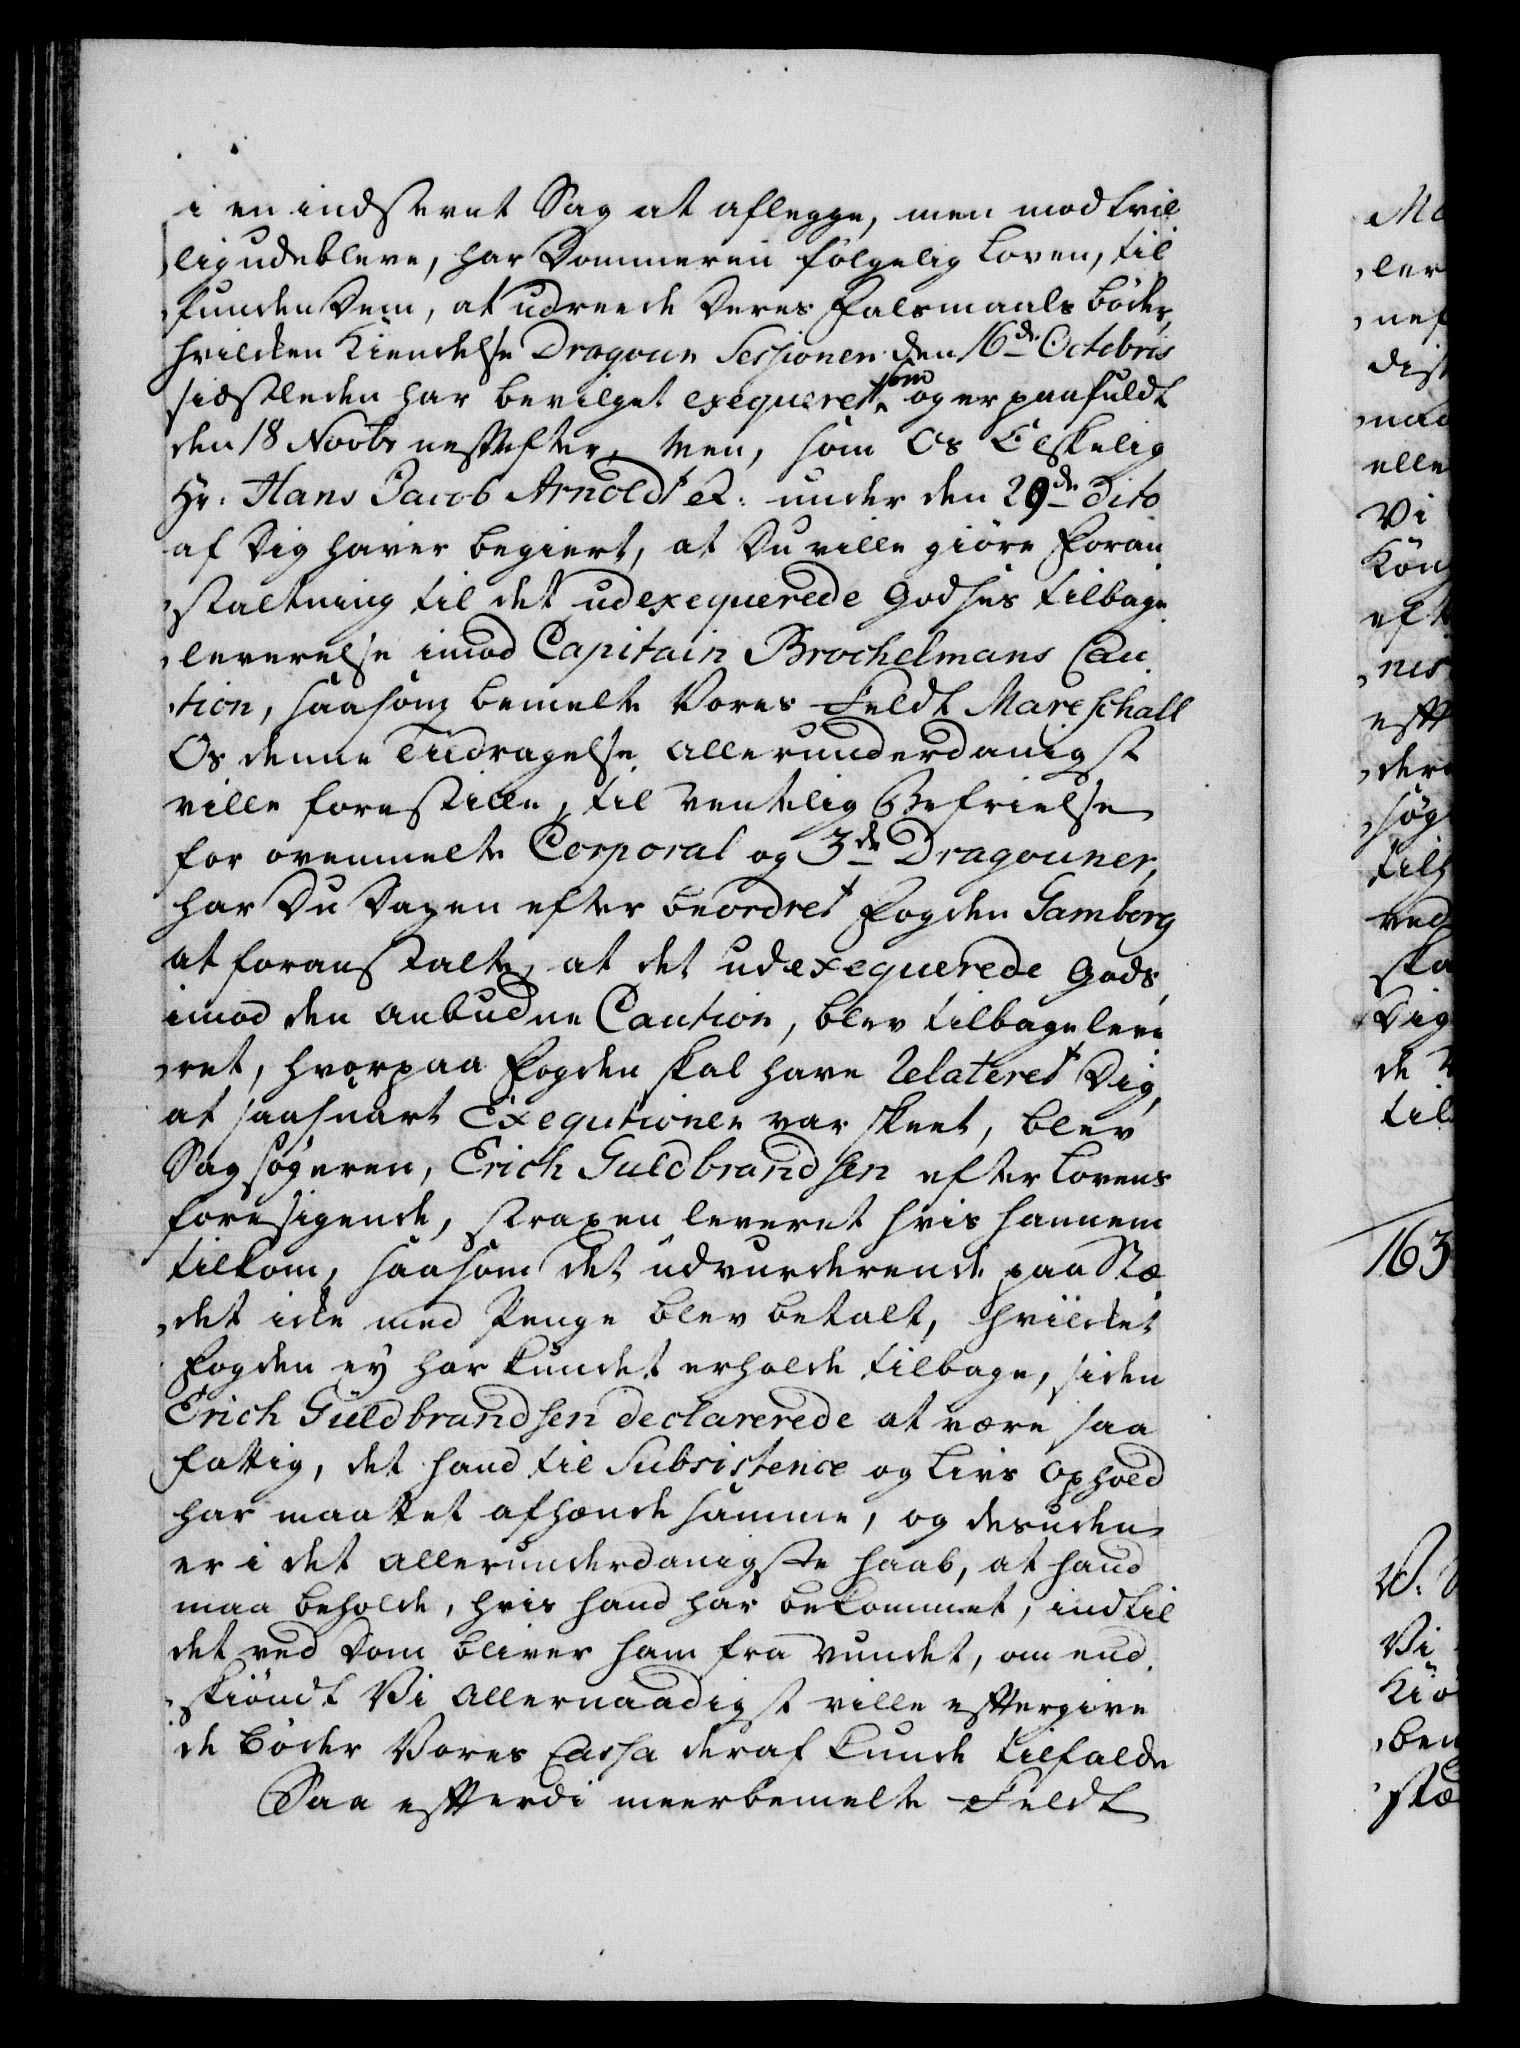 i en indstevnt Sag at aflegge, men modtvil
lig udebleve, har Dommeren følgelig Loven, til
funden Dem, at udreede Deres Falsmaals bøder,
hvilcken Kiendelse Dragoun Sessionen den 16de Octobris
sidstleden har bevilget exequeret som og er paafuldt
den 18 Novbr nestefter, Men, som Os Elskelig
Hr: Hans Jacob Arnoldt &: under den 29de Dito
af Dig haver begiert, at Du ville giøre Foran
staltning til det udexequerede Godses tilbage
leverelse imod Capitain Brochelmans Cau
tion, saasom bemelte Vores Feldt Mareschall
Os denne Tildragelse allerunderdanigst
ville forestille, til ventelig Befrielse
for ovenmelte Corporal og 3de Dragouner,
har Du Dagen efter beordret Fogden Gamborg
at foranstalte, at det udexequerede Gods,
imod den anbudne Caution, blev tilbage leve
ret, hvorpaa Fogden skal have Relateret Dig,
at saasnart Exequtionen var skeet, blev
Sagsøgeren, Erich Guldbrandsen efter Lovens
foresigende, straxen leveret hvis hannem
tilkom, saasom det udvurderende paa Stæ
det icke med Penge blev betalt, hvilcket
Fogden ey har kundet erholde tilbage, siden
Erich Guldbrandsen declarerede at være saa
fattig, det hand til Subsistence og Livs Ophold
har maattet afhænde samme, og desuden
er i det allerunderdanigste haab, at hand
maa beholde, hvis hand har bekommet, indtil
det ved Dom bliver ham fra vundet, om end
skiøndt Vi allernaadigst ville eftergive
de bøder Vores Cassa deraf kunde tilfalde
Saa efterdi meerbemelte Feldt